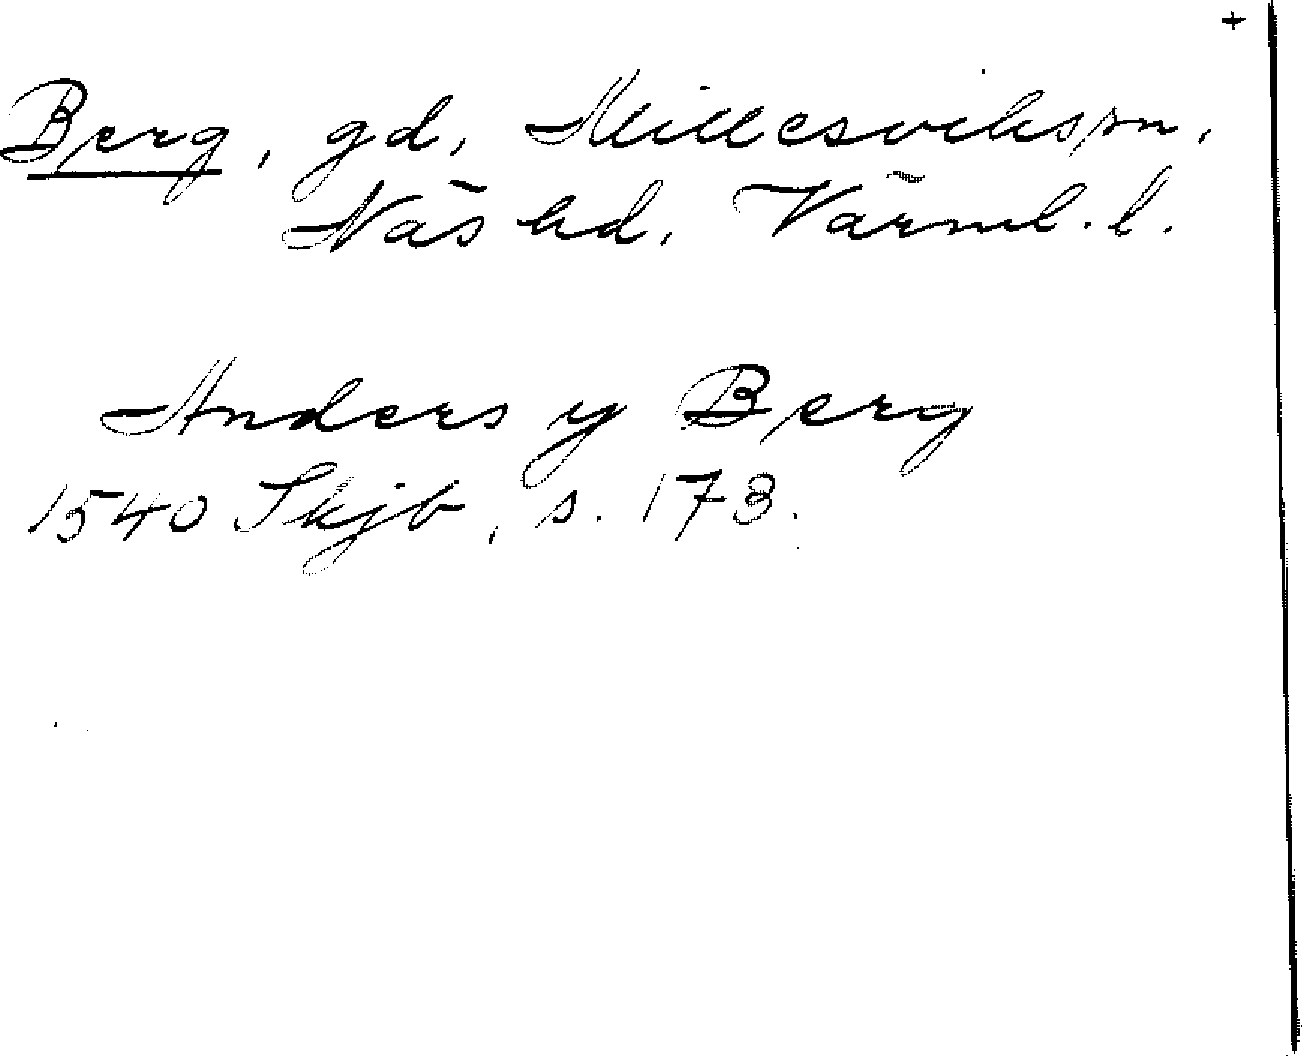 +
Berg, gd, Millesvikssn,
Näs hd, Värml. l.
Anders y Berg
1540 Skjb, s. 173.